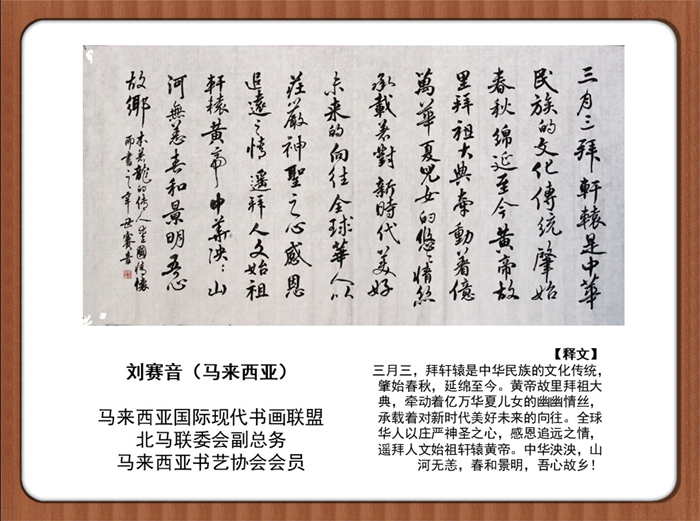 三月三拜軒轅是中華
民族的文化傳統肇始
春秋綿延至今黃帝故
里拜祖大典牽動著億
萬華夏兒女的悠〻情絲
承載着對新時代美好
未来的向往全球華人以
莊嚴神聖之心感恩
追遠之情遥拜人文始祖
軒轅黃帝中華泱〻山
河無恙春和景明吾心
故鄉
龍的傳人
而書之 賽音
刘赛音（马来西亚）
马来西亚国际现代书画联盟
北马联委会副总务
马来西亚书艺协会会员
【释文】
三月三，拜轩辕是中华民族的文化传统，
肇始春秋，延绵至今。黄帝故里拜祖大
典，牵动着亿万华夏儿女的幽幽情丝，
承载着对新时代美好未来的向往。全球
华人以庄严神圣之心，感恩追远之情，
遥拜人文始祖轩辕黄帝。中华泱泱，山
河无恙，春和景明，吾心故乡！